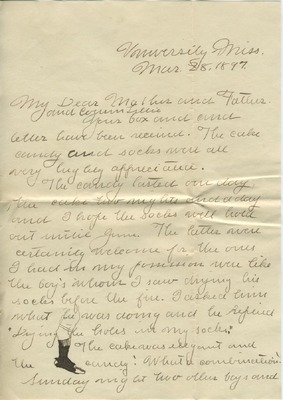 University, Miss.
Mar 28. 1897.
My Dear Mother and Father
and Cousin
Your box and card
letter have been received. The cake
candy and socks were all
very highly appreciated.
The candy lasted one day
the cake two nights and a day
and I hope the socks will hold
out until June. The latter were
certainly welcome for the ones
I had in my possession were like
the boy's whom I saw drying his
socks before the fire. I asked him
what he was doing and he replied
"Drying the holes in my socks."
The cake was elegant and
the candy! What a combination!
Sunday night two other boys and